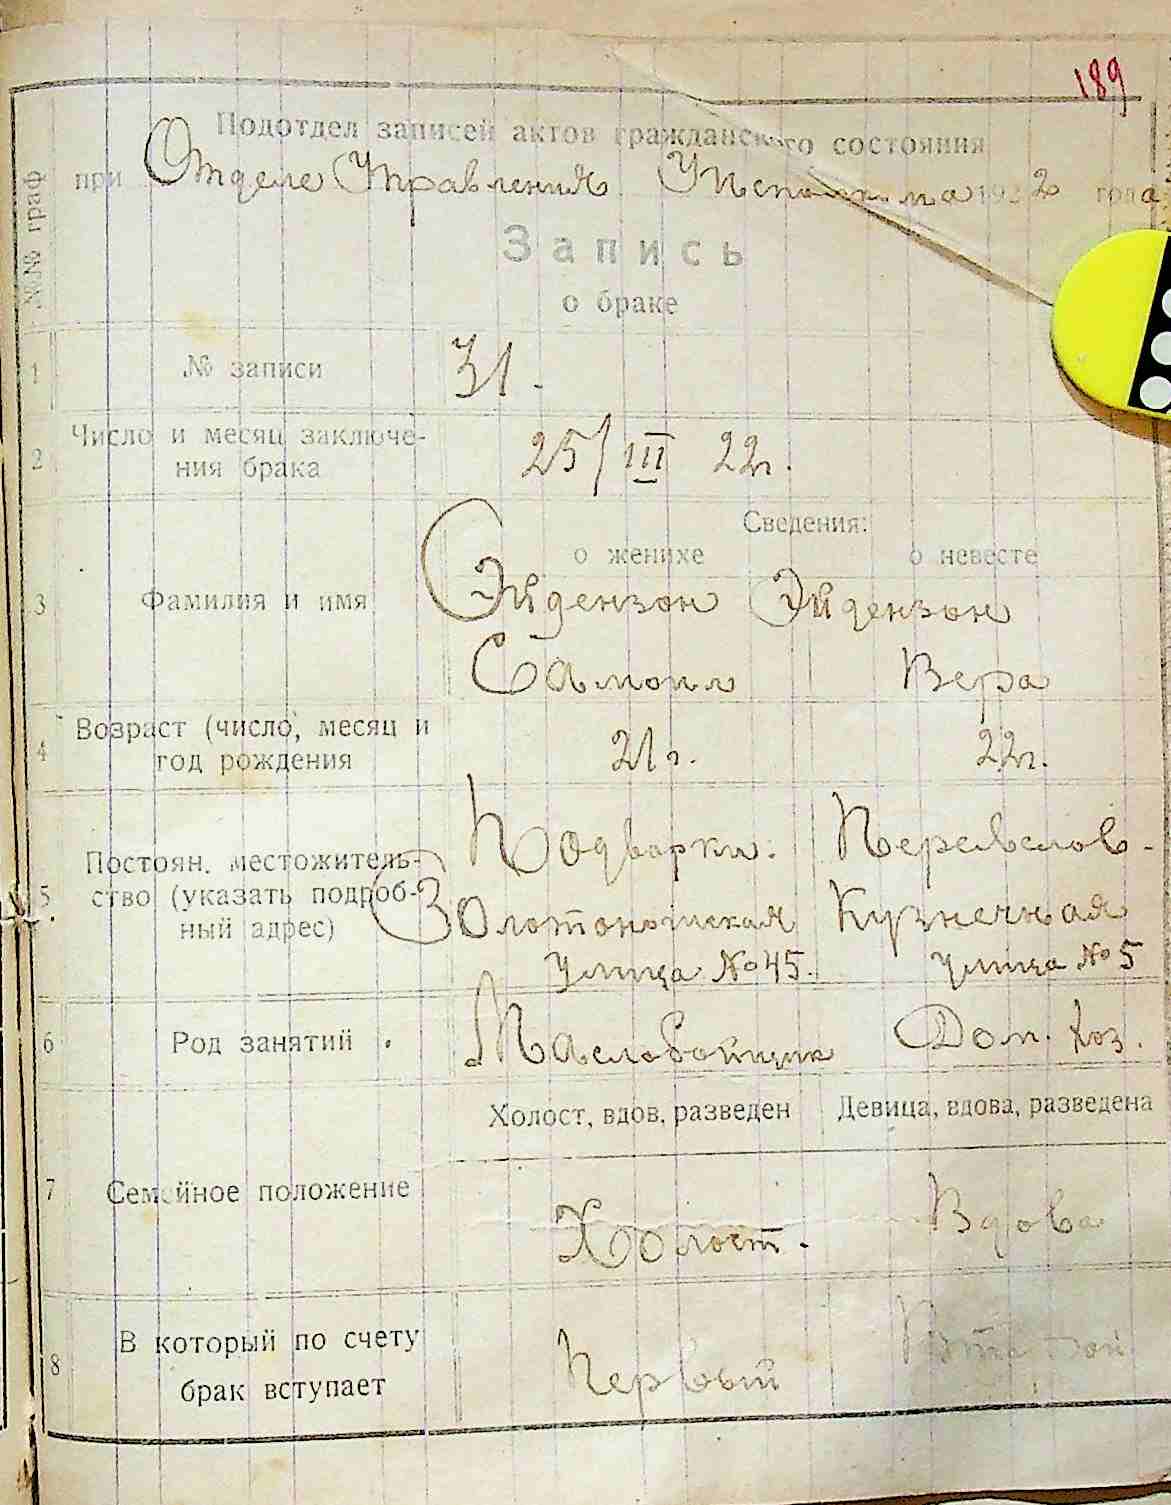 189
Подотдел записей актов гражданского состояния
при Отделе Управления 1922 года
№№ граф
Запись
о браке
1 № записи 31.
2 Число и месяц заключе-
ния брака 25/III 22г.
Сведения:
о женихе о невесте
3 Фамилия и имя Эйдензон Эйдензон
Самоил Вера
4 Возраст (число, месяц и
год рождения 21 г. 22г.
Подварки. Переяслов.
5 Постоян. местожитель-
ство (указать подроб-
ный адрес) Золотоношская Кузнечная
улица №45. улица №5
6 Род занятий Маслобойщик Дом. хоз.
Холост, вдов, разведен Девица, вдова, разведена
7 Семейное положение
Холост. Вдова
8 В который по счету
брак вступает Первый